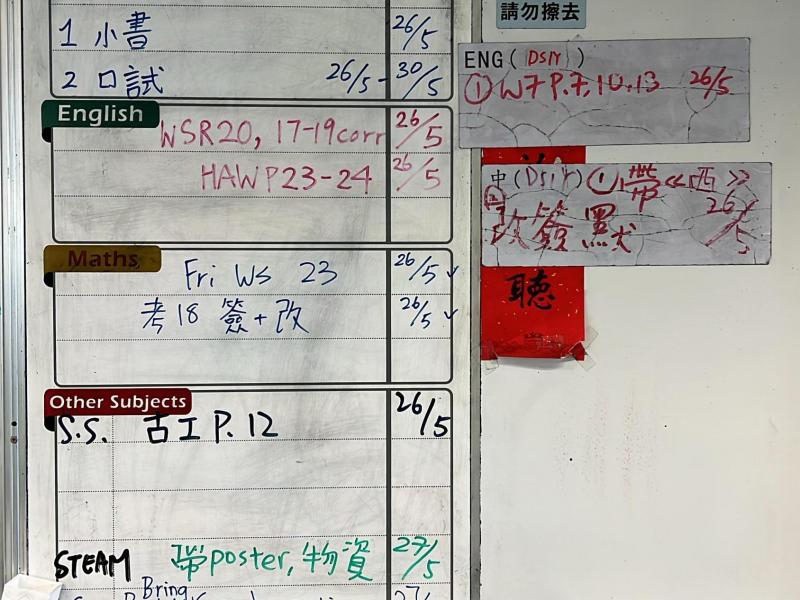 1 小書 26/5
2 口試 26/5 - 30/5
English
WSR20, 17-19corr 26/5
HAWP23-24 26/5
Maths
Fri WS 23 26/5 ✓
考18 簽+改 26/5 ✓
Other Subjects
S.S. 古工P.12 26/5
STEAM 帶poster, 物資 27/5
Bring
27/
請勿擦去
ENG( DSIY )
① W7 P.7, 10, 13 26/5
中(DSIY) ①帶《西》
② 改簽默 26/5
聽